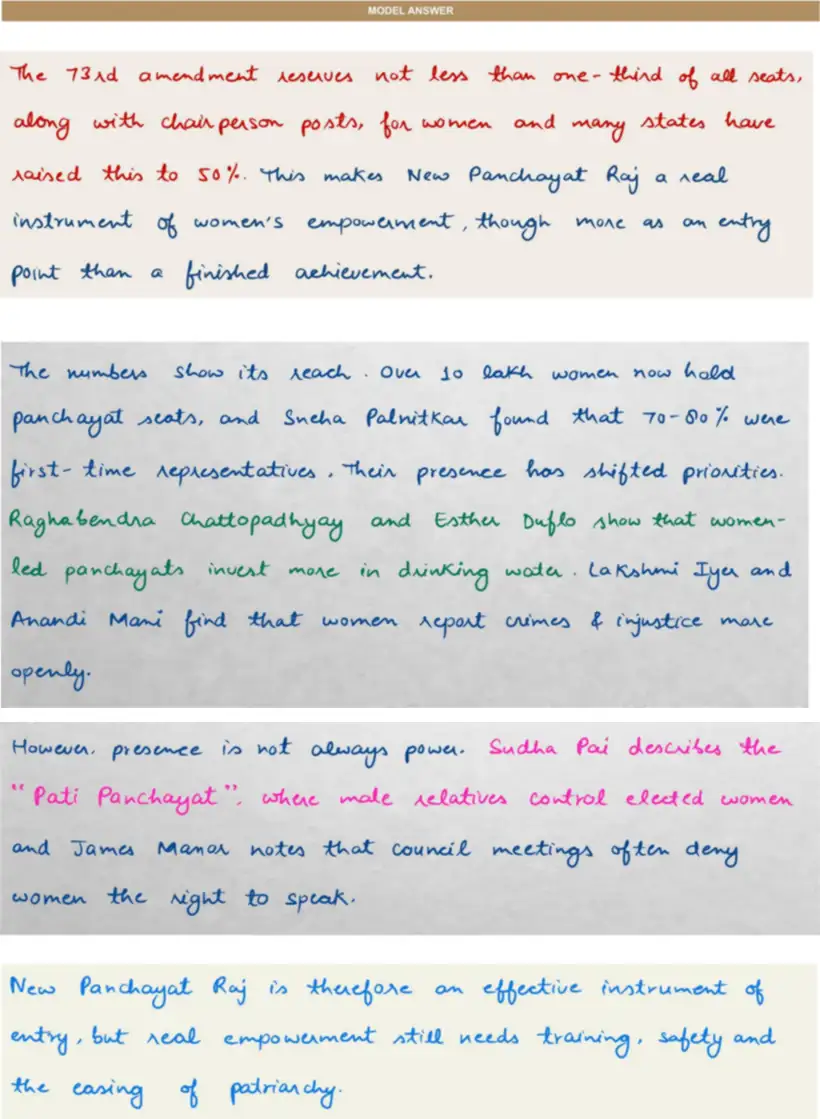 MODEL ANSWER
The 73rd amendment reserves not less than one-third of all seats,
along with chairperson posts, for women and many states have
raised this to 50%. This makes New Panchayat Raj a real
instrument of women's empowerment, though more as an entry
point than a finished achievement.
The numbers show its reach. Over 10 lakh women now hold
panchayat seats, and Sneha Palnitkar found that 70-80% were
first-time representatives. Their presence has shifted priorities.
Raghabendra Chattopadhyay and Esther Duflo show that women-
led panchayats invest more in drinking water. Lakshmi Iyer and
Anandi Mani find that women report crimes & injustice more
openly.
However, presence is not always power. Sudha Pai describes the
"Pati Panchayat", where male relatives control elected women
and James Manor notes that council meetings often deny
women the right to speak.
New Panchayat Raj is therefore an effective instrument of
entry, but real empowerment still needs training, safety and
the easing of patriarchy.